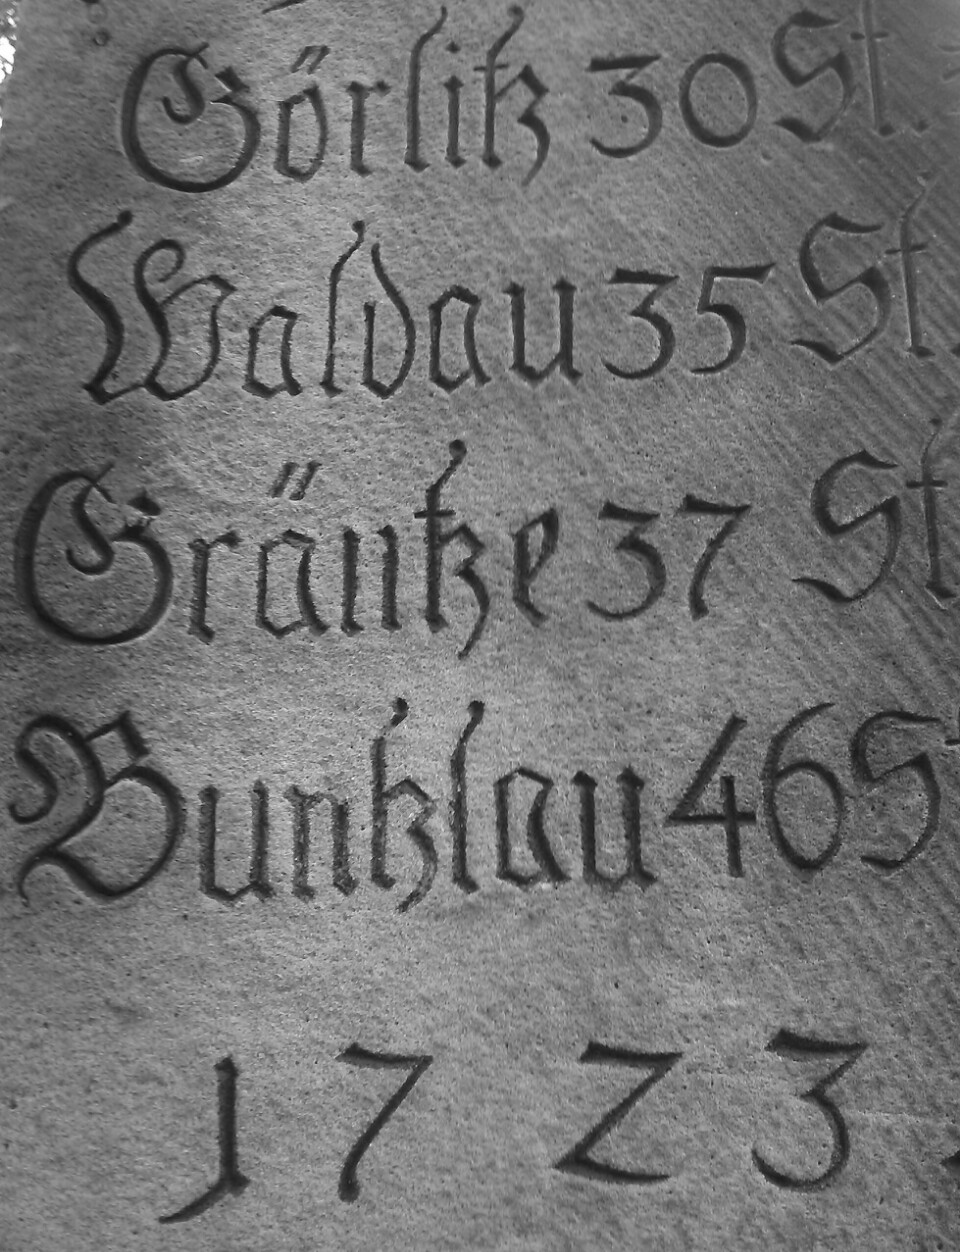 Görlitz 30 St.
Waldau 35 St.
Gräntze 37 St
Buntzlau 46 St
1723